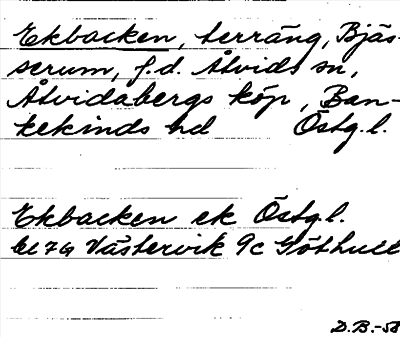 Ekbacken, terräng, Bjäs-
serum, f.d. Åtvids sn,
Åtvidabergs köp, Ban-
kekinds hd Östg.l.
Ekbacken ek Östgl.
bl 7G Västervik 9c Göthult
D.B.-58